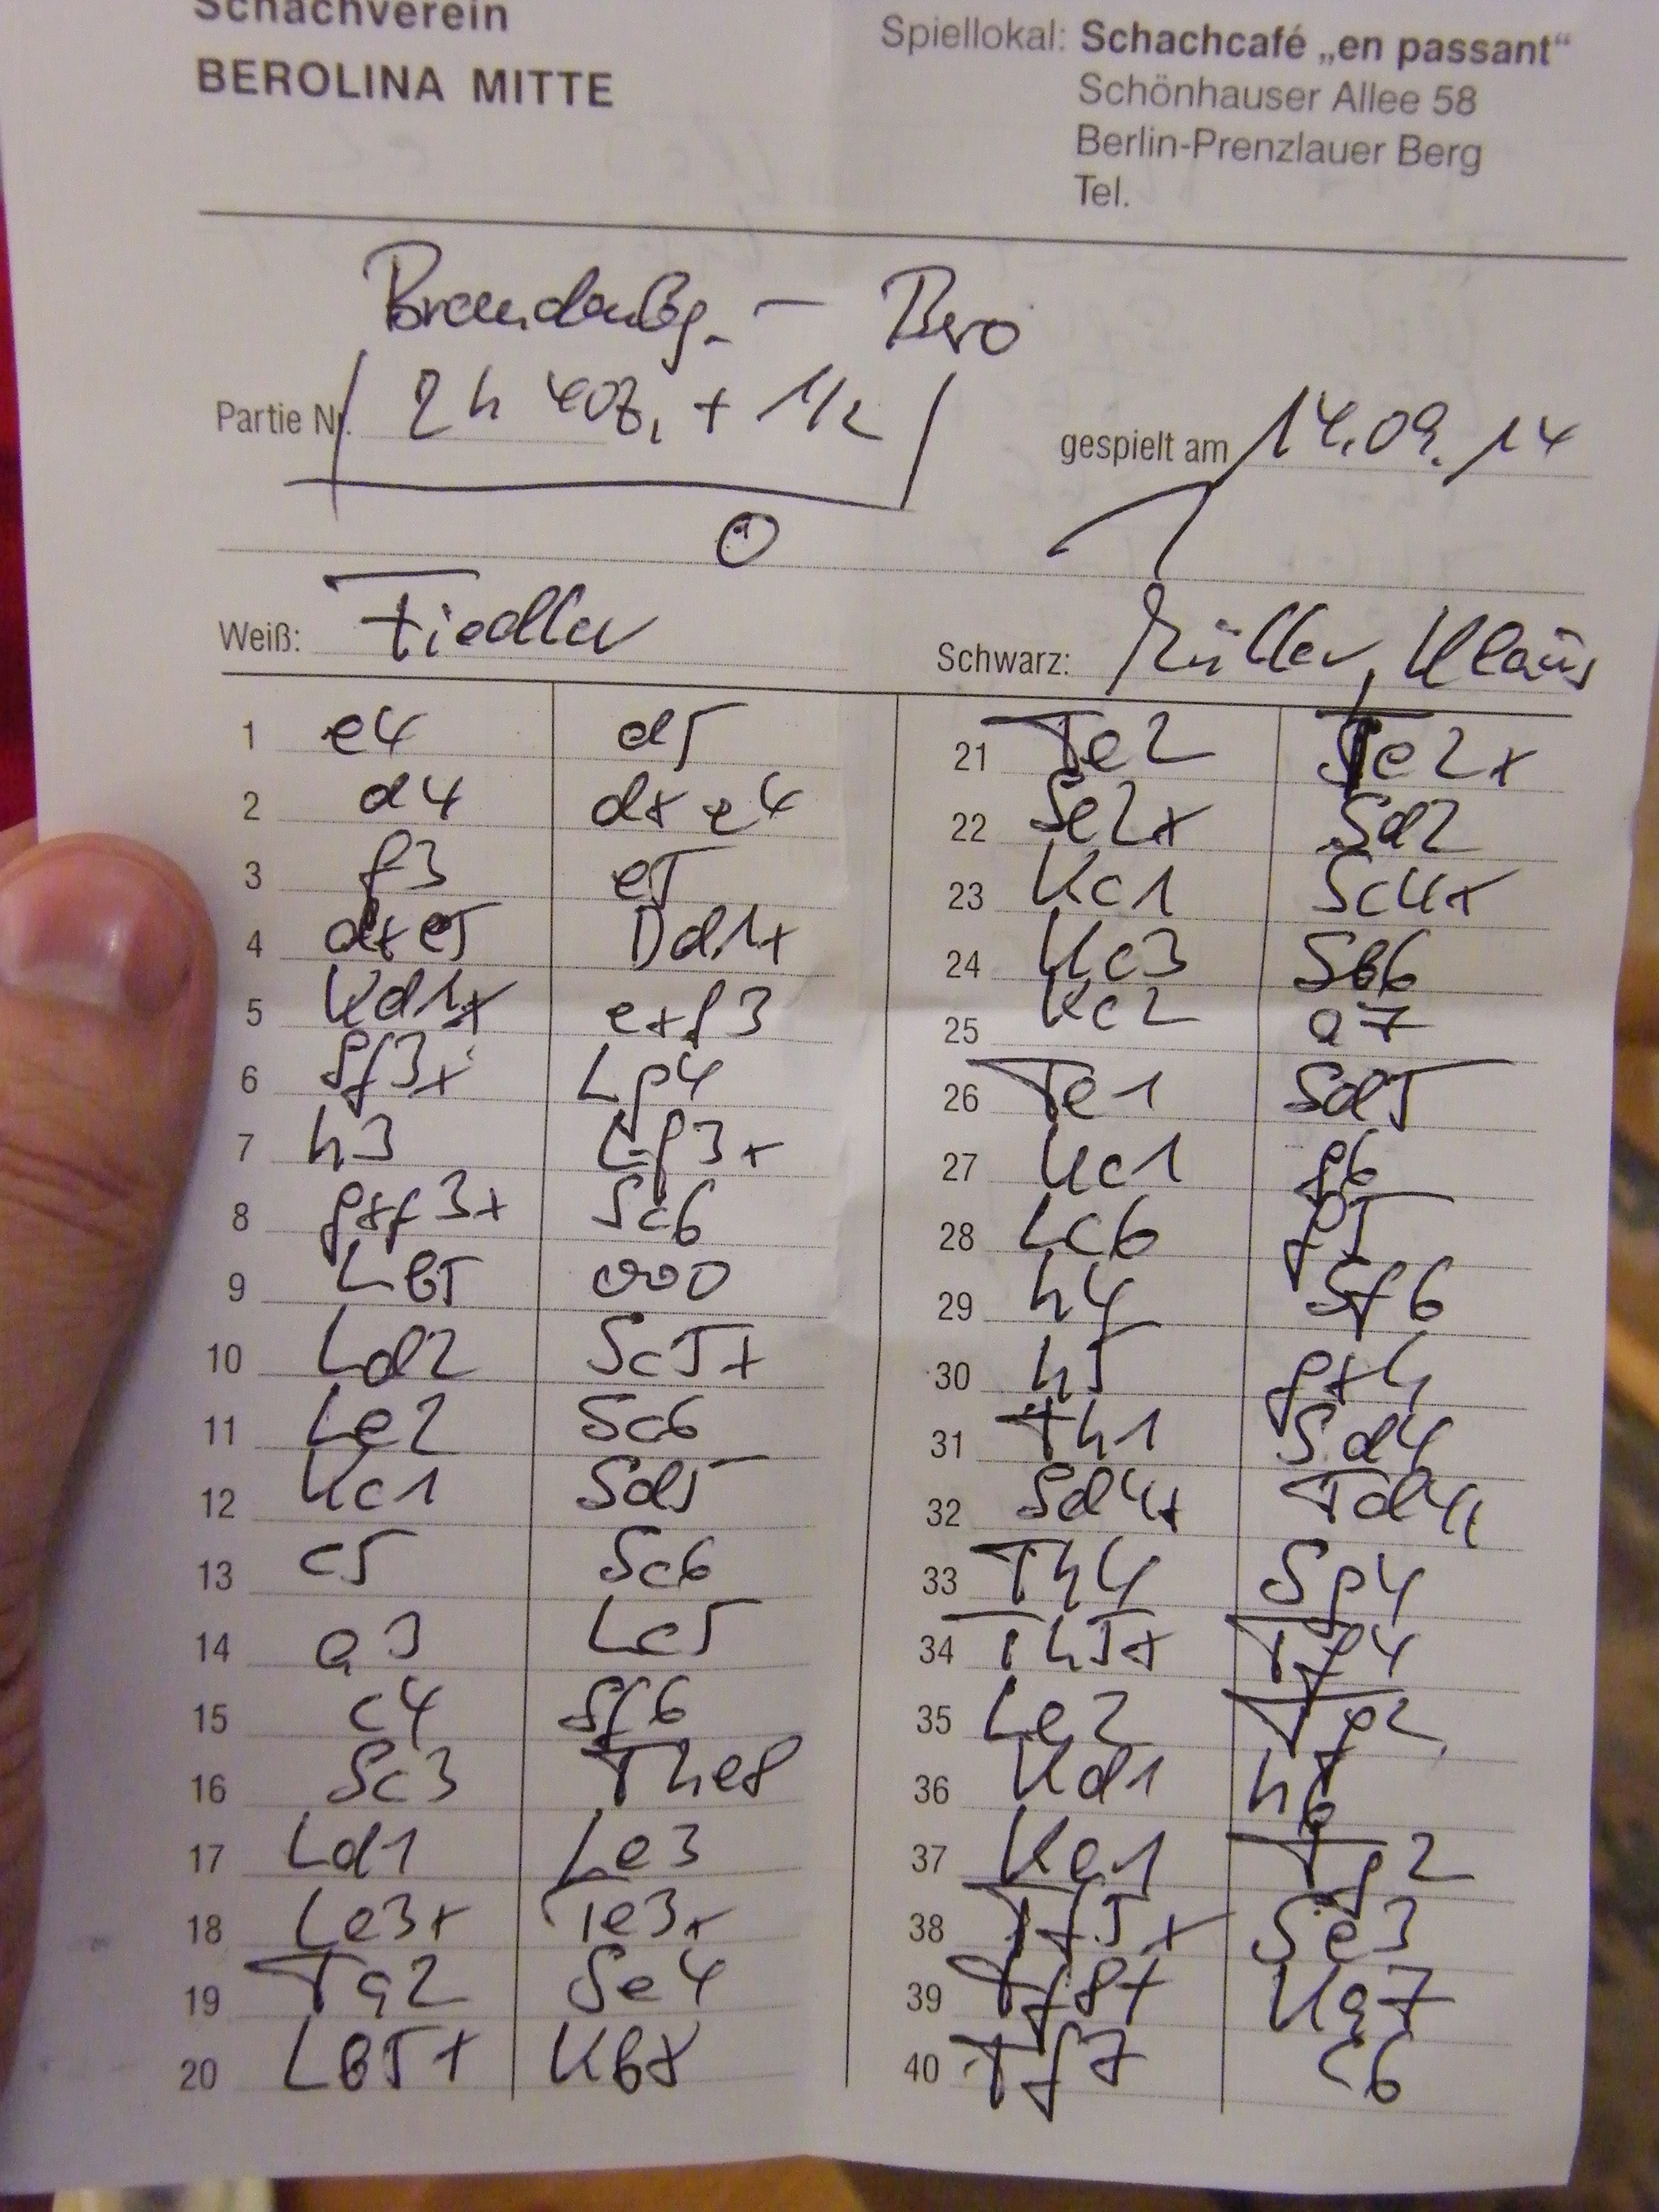 Schachverein
BEROLINA MITTE
Spiellokal: Schachcafé „en passant“
Schönhauser Allee 58
Berlin-Prenzlauer Berg
Tel.
Brandenbg. – Bero
Partie Nr. 2h 40z, + 1/2
gespielt am 14.09.14
0
Weiß: Fiedler
Schwarz: Müller, Klaus
1 e4 d5
2 d4 dxe4
3 f3 e5
4 dxe5 Dd1+
5 Kd1x exf3
6 Sf3x Lg4
7 h3 Lf3x
8 gxf3x Sc6
9 Lb5 000
10 Ld2 Sc5x
11 Le2 Sc6
12 Kc1 Sd5
13 c5 Sc6
14 a3 Lc5
15 c4 Sf6
16 Sc3 The8
17 Ld1 Le3
18 Le3x Te3x
19 Ta2 Se4
20 Lb5+ Kb8
21 Te2 Te2x
22 Se2x Sd2
23 Kc1 Sc4x
24 Kc3 Sb6
25 Kc2 a7
26 Te1 Sd5
27 Kc1 g6
28 Lc6 g5
29 h4 Sf6
30 h5 gxh
31 Th1 Sd4
32 Sd4x Td4x
33 Th4 Sg4
34 Th5x Tf4
35 Le2 Tg2
36 Kd1 h6
37 Ke1 Tg2
38 Tf5x Se3
39 Tf8+ Ka7
40 Tf7 c6